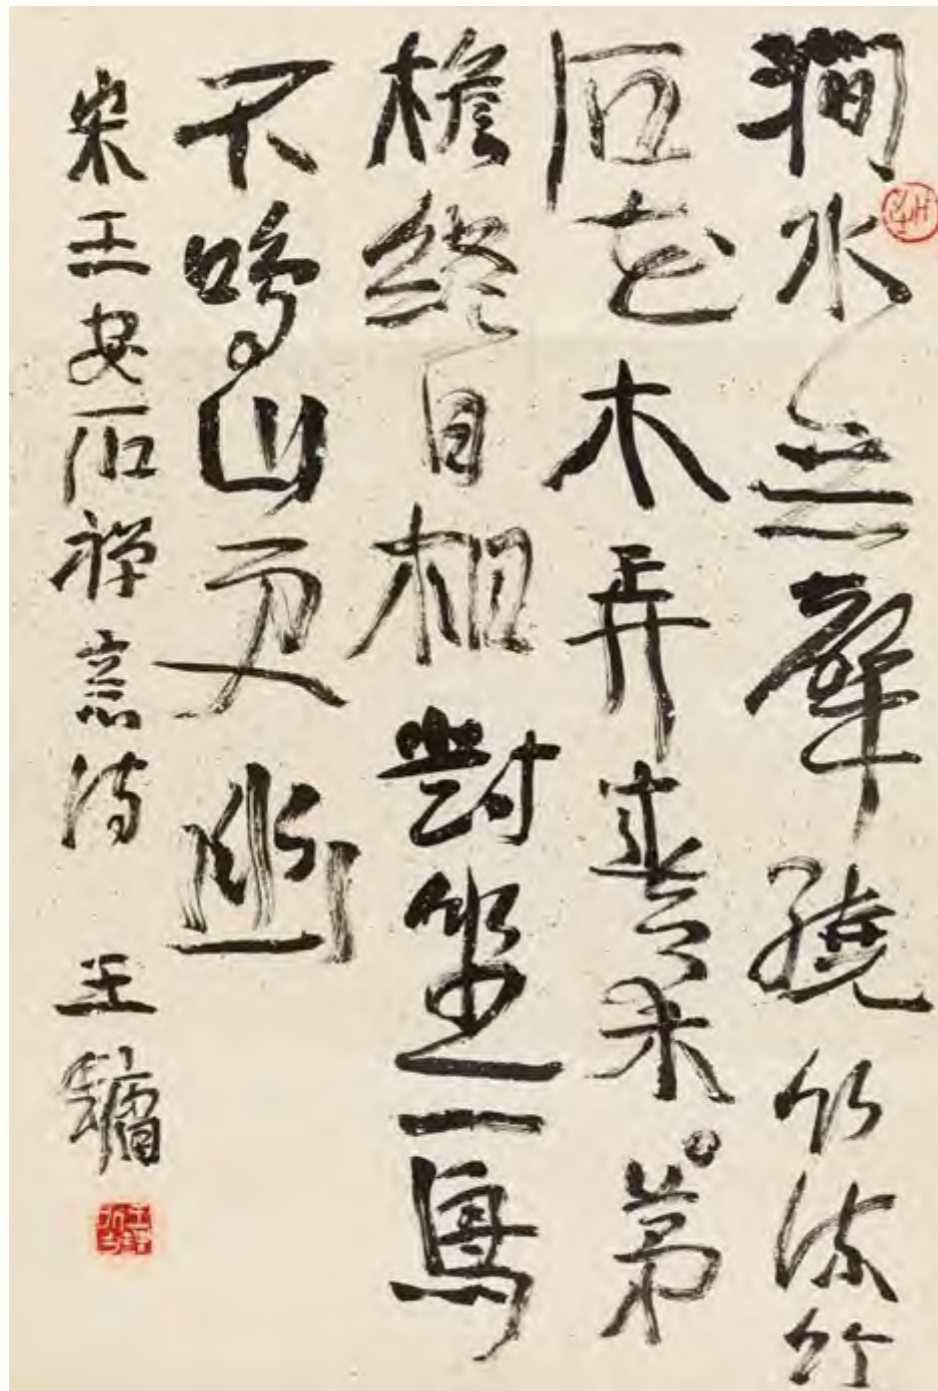 澗水無聲繞竹流竹
西花木弄春柔茅
檐終日相對坐一鳥
不鳴山更幽
宋王安石禪意詩 王鏞